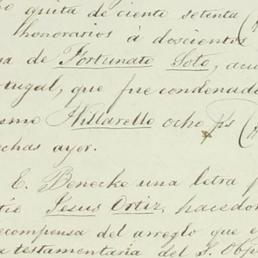 quita de ciento setenta
honorarios a doscientos
sa de Fortunato Soto, acu
ortugal, que fue condenado
smo Villarello ocho ps
chas ayer.
E. Benecke una letra p
Jesus Ortiz, hacedor
compensa del arreglo que e
a testamentaria del S. Obp